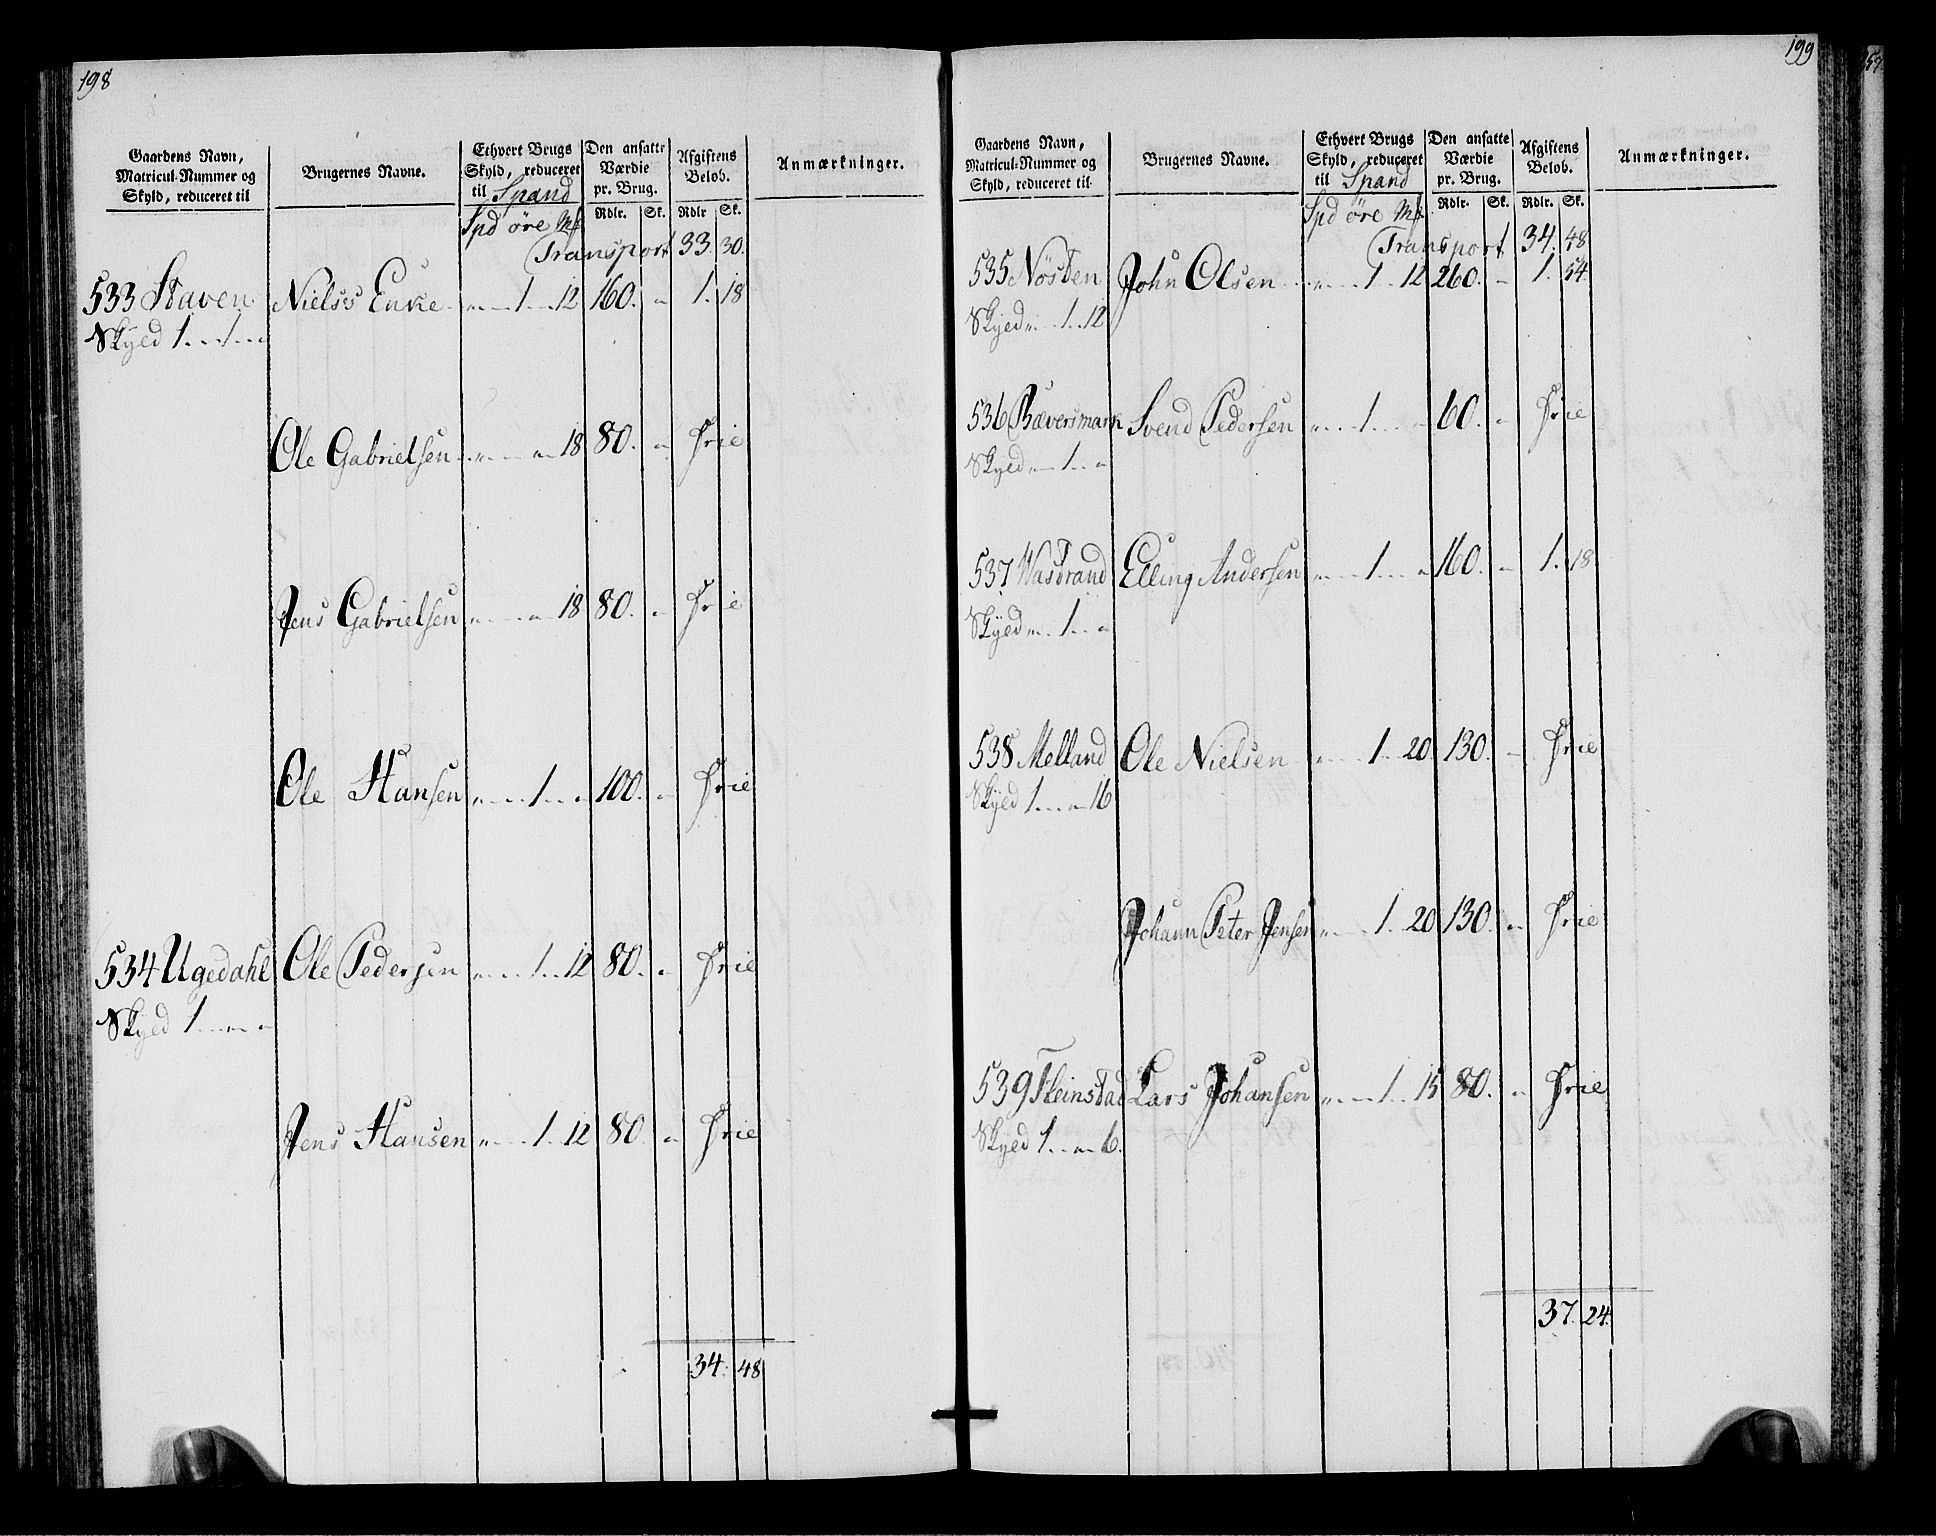 198
Gaardens Navn, Matricul-Nummer og Skyld, reduceret til
Brugernes Navne.
Ethvert Brugs Skyld, reduceret til Spand
Den ansatte Værdie pr. Brug.
Afgiftens Beløb.
Anmærkninger.
Spd øre Mk Rdlr. Sk. Rdlr Sk.
Transport 33. 30.
533 Staven Nielses Enke 1 12 160. 1. 18
Skyld 1 1
Ole Gabrielsen 18 80. Frie
Jens Gabrielsen 18 80. Frie
Ole Hansen 1 100. Frie
534 Ugedahl Ole Pedersen 1 12 80. Frie
Skyld 1
Jens Hansen 1 12 80. Frie
34. 48
199
Gaardens Navn, Matricul-Nummer og Skyld, reduceret til
Brugernes Navne.
Ethvert Brugs Skyld, reduceret til Spand
Den ansatte Værdie pr. Brug.
Afgiftens Beløb.
Anmærkninger.
Spd øre Mk Rdlr. Sk. Rdlr. Sk.
Transport 34. 48
535 Nösten John Olsen 1 12 260. 1. 54
Skyld 1 12
536 Bæversmark Svend Pedersen 1 60. Frie
Skyld 1
537 Wastrand Elling Andersen 1 160. 1. 18
Skyld 1
538 Melland Ole Nielsen 1 20 130. Frie
Skyld 1 16
Johann Peter Jensen 1 20 130. Frie
539 Steinstad Lars Johansen 1 15 80. Frie
Skyld 1 6.
37. 24.